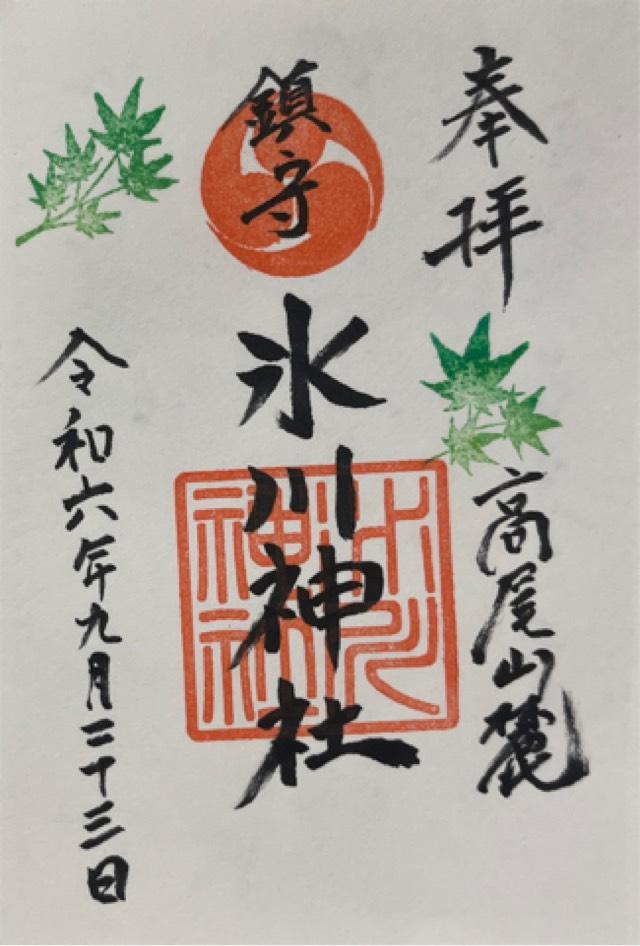 奉拝
高尾山麓
鎮守
氷川神社
氷川
神社
令和六年九月二十三日